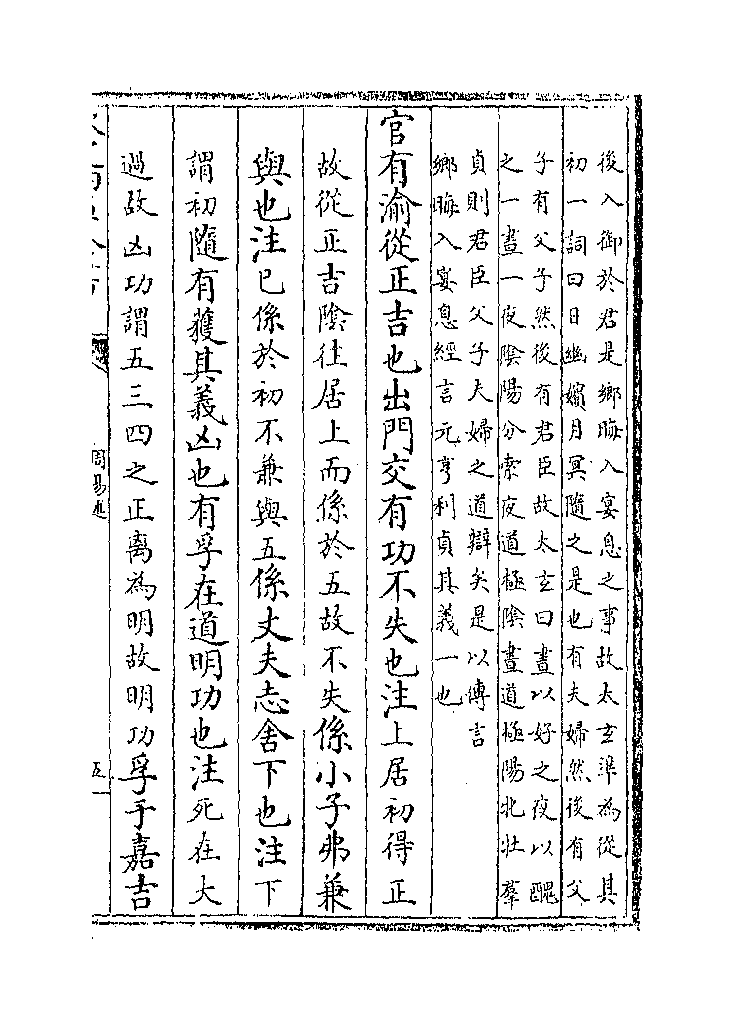 後入御於君是鄉晦入宴息之事故太玄準為從其
初一詞曰日幽嬪月冥隨之是也有夫婦然後有父
子有父子然後有君臣故太玄曰晝以好之夜以醜
之一晝一夜陰陽分索夜道極陰晝道極陽牝牡羣
貞則君臣父子夫婦之道辯矣是以傳言
鄉晦入宴息經言元亨利貞其義一也
官有渝從正吉也出門交有功不失也注上居初得正
故從正吉陰往居上而係於五故不失係小子弗兼
與也注已係於初不兼與五係丈夫志舍下也注下
謂初隨有獲其義凶也有孚在道明功也注死在大
過故凶功謂五三四之正离為明故明功孚于嘉吉
周易述
五